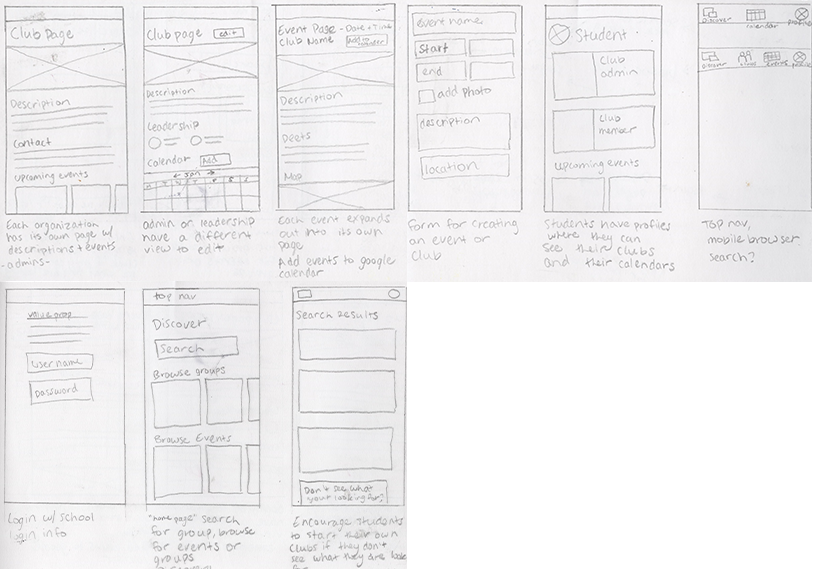 Club Page
Description
Contact
upcoming events
Each organization
has its own page w/
descriptions + events
-admins-
Club page
edit
Description
Leadership
Calendar
Add
← Jan →
admin or leadership
have a different
view to edit
Event Page - Date + Time
Club Name
Add to
calendar
Description
Deets
Map
Each event expands
out into its own
page
Add events to google
calendar
event name
start
end
add photo
description
location
form for creating
an event or
club
Student
Club
admin
Club
member
upcoming events
Students have profiles
where they can
see their clubs
and their calendars
Discover
calendar
profile
Discover
events
profile
Top nav,
mobile browser
search?
value prop
username
password
Login w/ school
login info
top nav
Discover
Search
Browse groups
Browse Events
"home page" search
for group, browse
for events or
groups
Search Results
Don't see what
your looking for?
Encourage students
to start their own
clubs if they don't
see what they are look